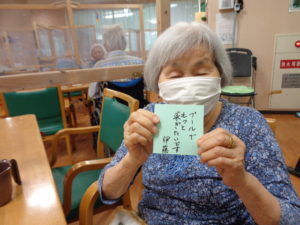 プールで
もっと
泳ぎたいです
伊藤